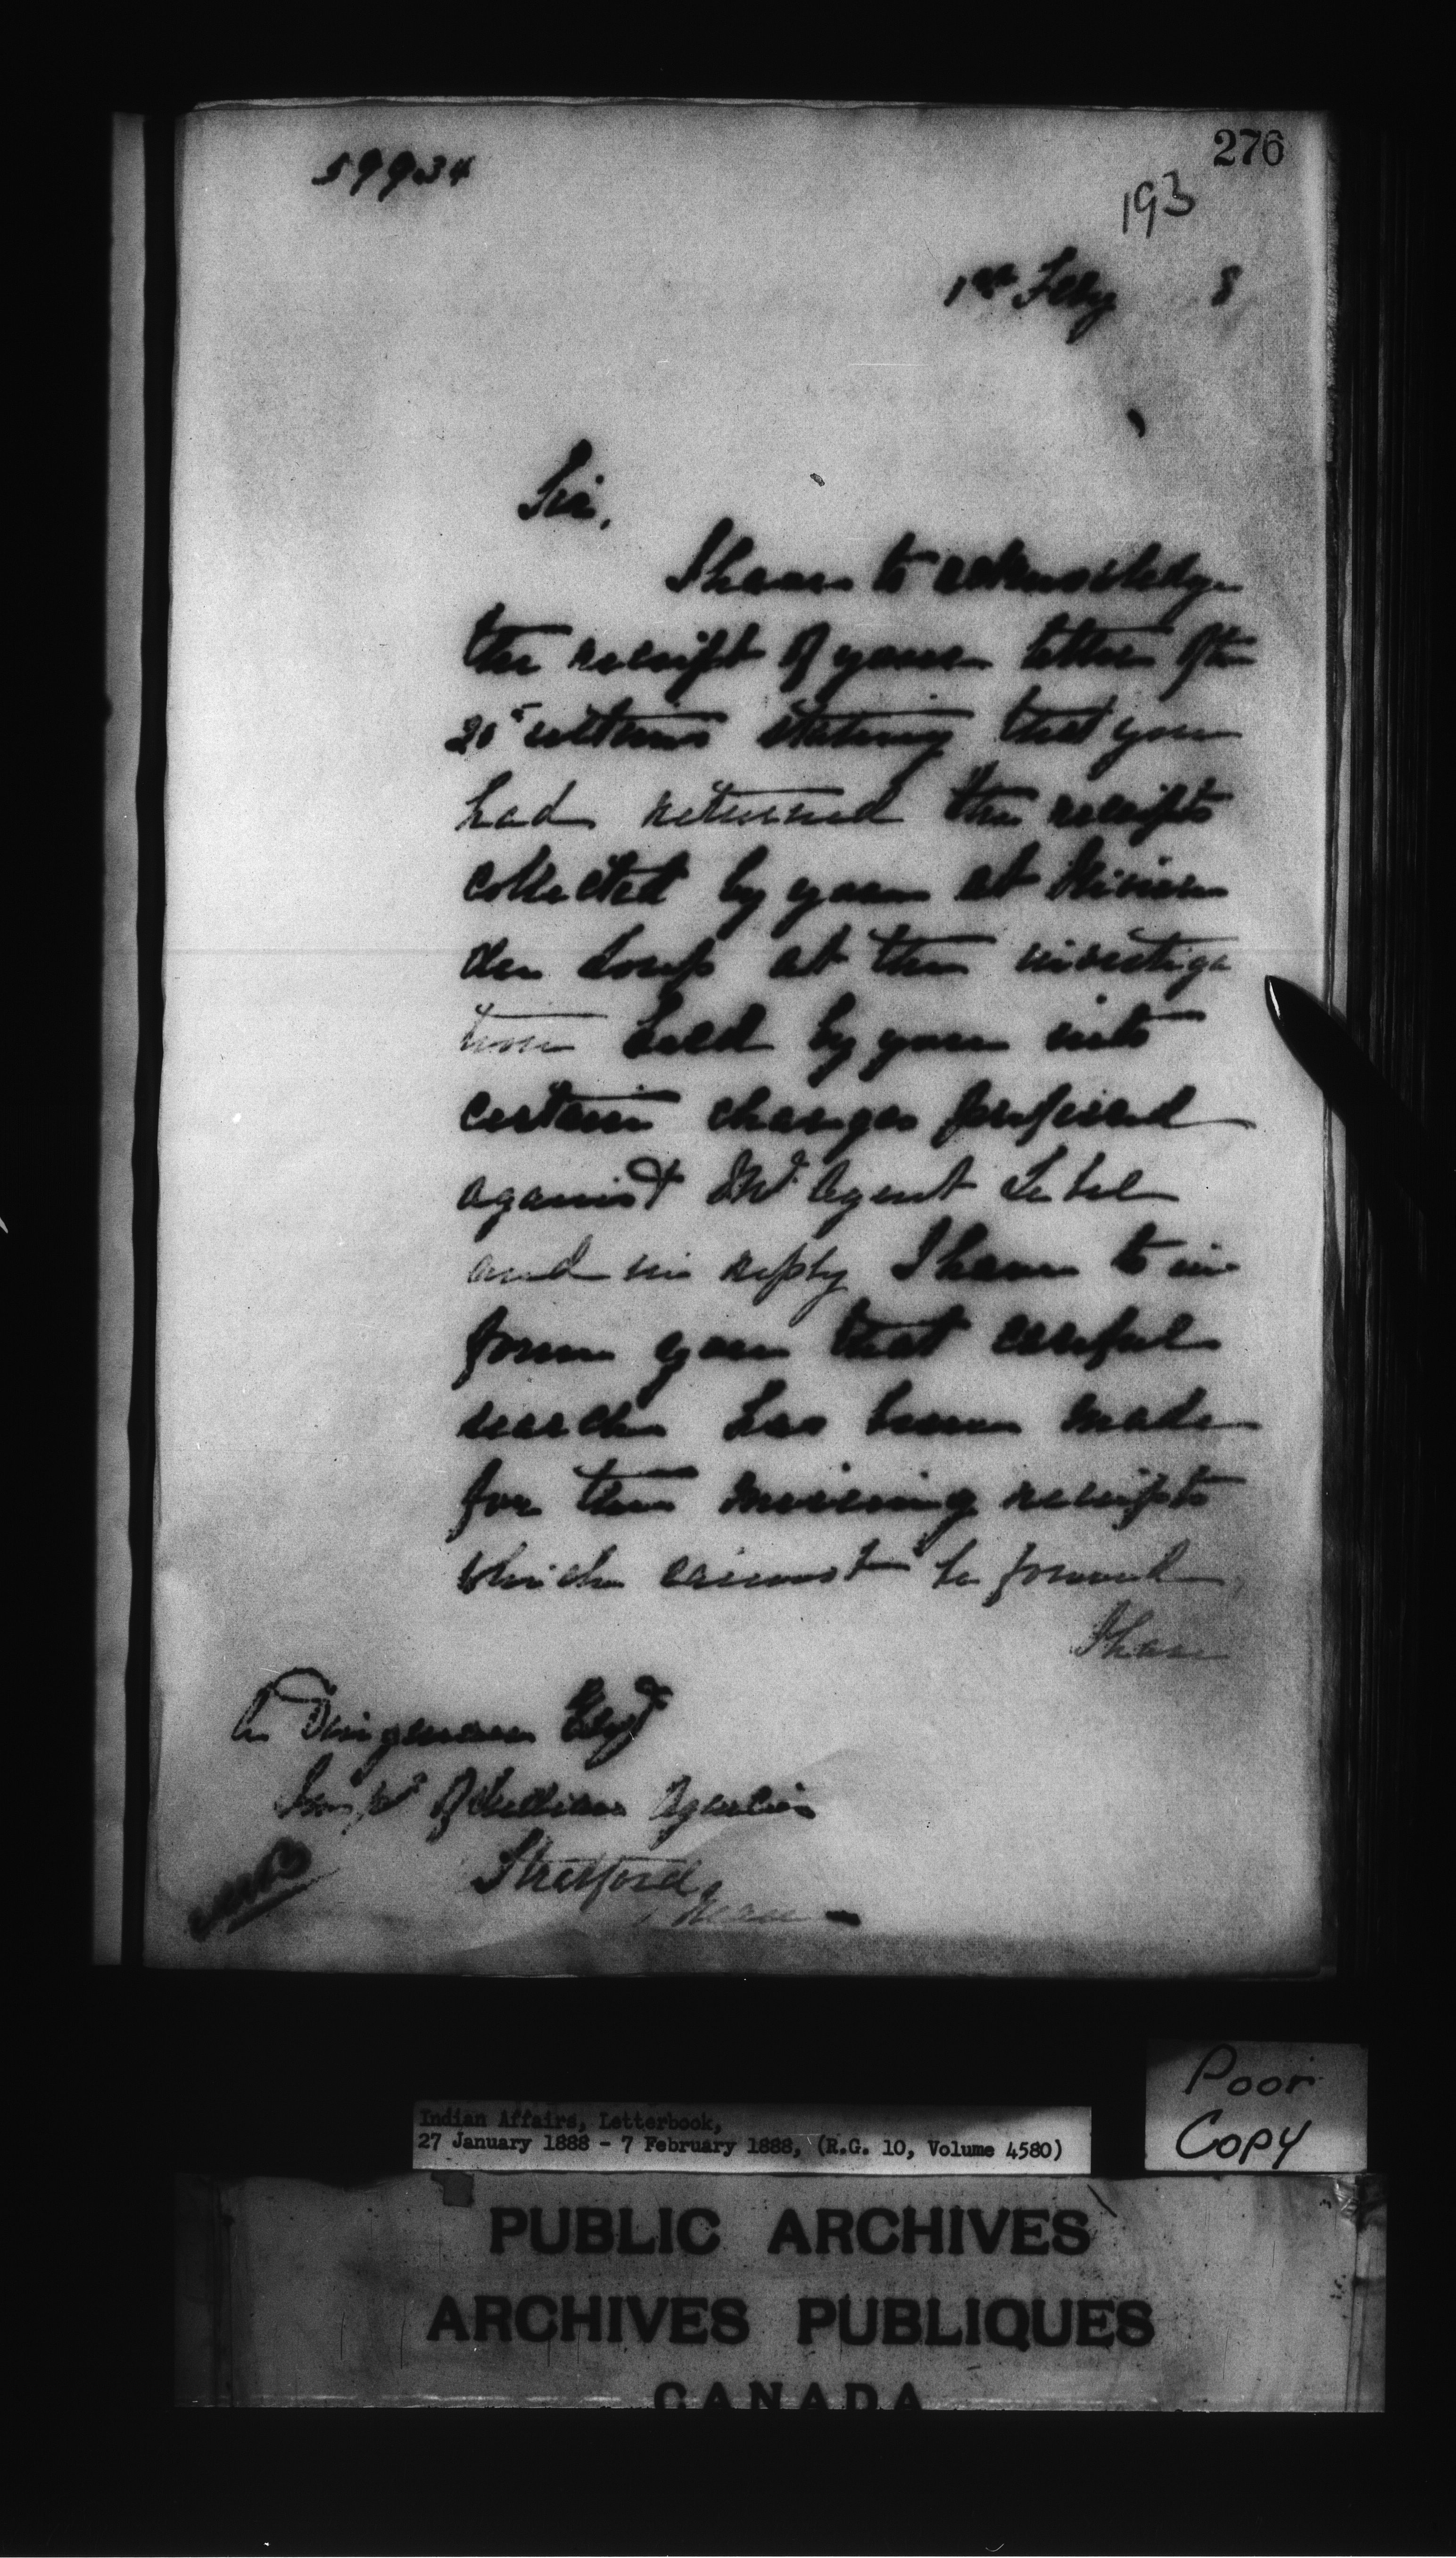 59934
276
193
1st Feby 8
Sir,
I have to acknowledge
the receipt of your letter of the
ultimo stating that you
had returned the receipts
collected by you at Riviere
du Loup at the investiga
tion held by you into
certain charges preferred
against Mr. Agent Lebel
and in reply I have to in
form you that careful
search has been made
for the missing receipts
which cannot be found
I have
A Dingman Esqr
Inspr of Indian Agencies
Stratford,
Poor
Copy
Indian Affairs, Letterbook,
27 January 1888 - 7 February 1888, (R.G. 10, Volume 4580)
PUBLIC ARCHIVES
ARCHIVES PUBLIQUES
CANADA